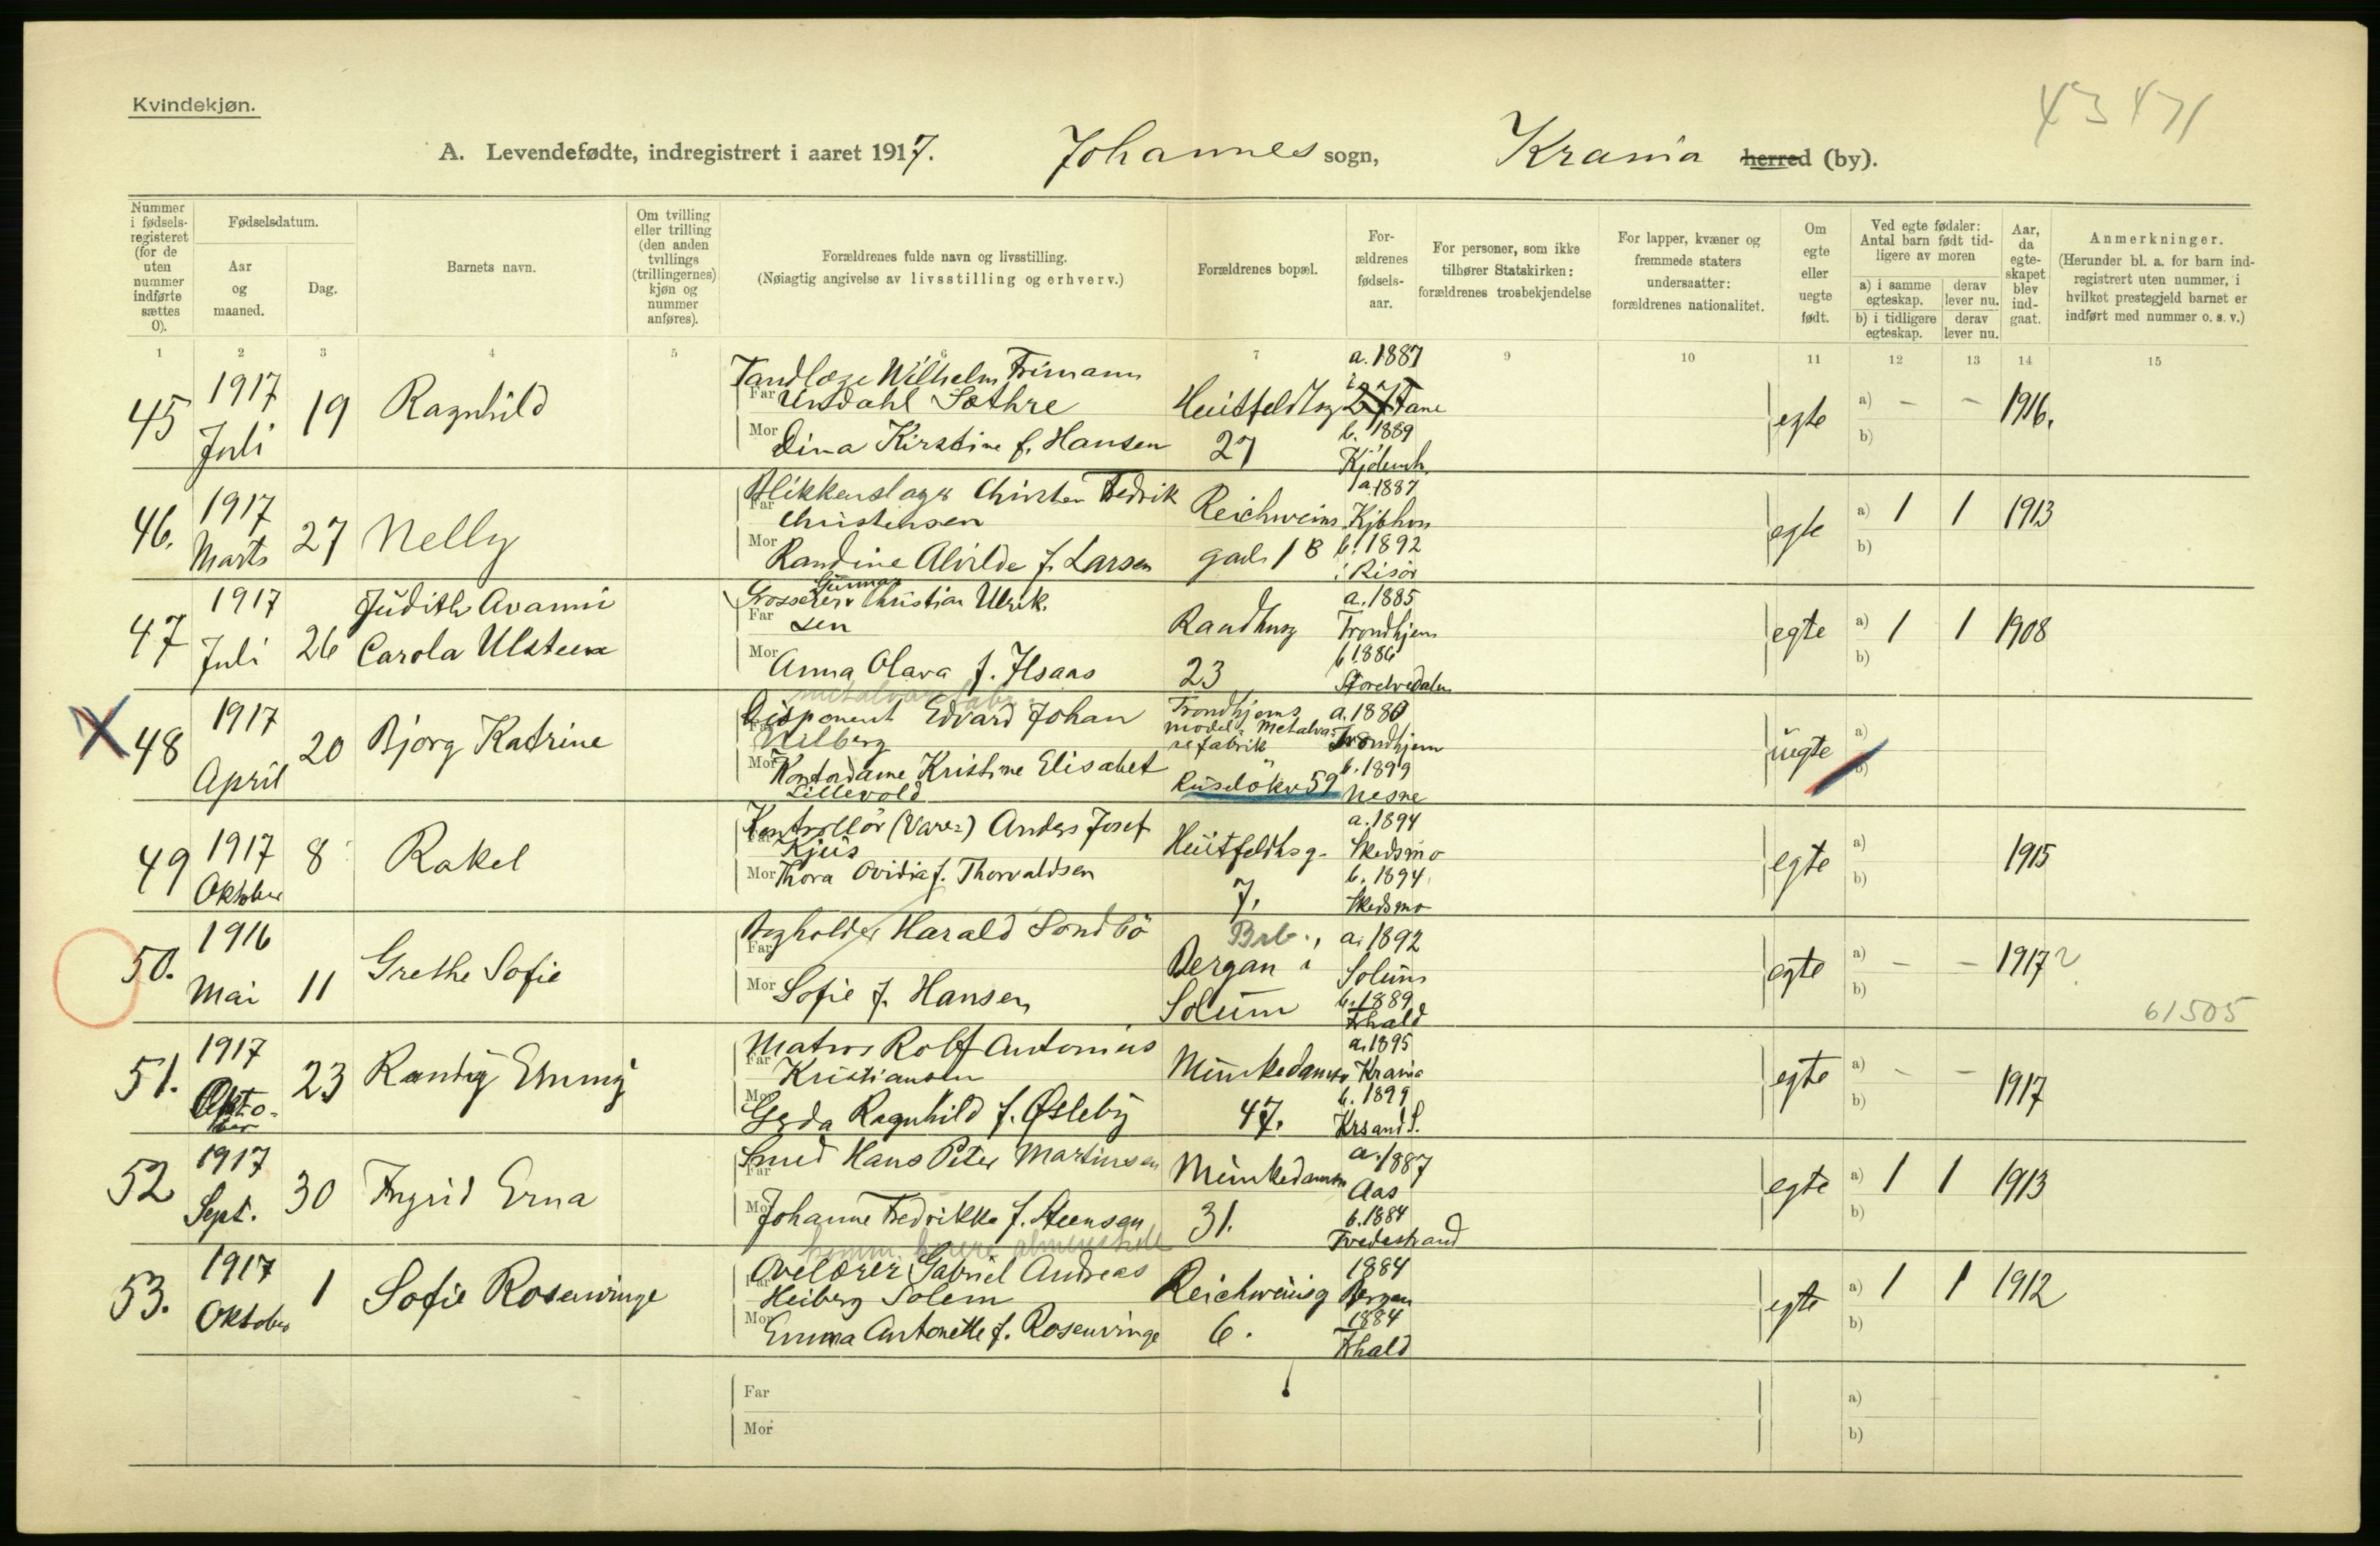 Kvindekjøn.
43 471
A. Levendefødte, indregistrert i aaret 1917. Johannes sogn, Krania herred (by).
Nummer i fødselsregisteret (for de uten nummer indførte sættes 0).
Fødselsdatum.
Aar og maaned.
Dag.
Barnets navn.
Om tvilling eller trilling (den anden tvillings (trillingernes) kjøn og nummer anføres).
Forældrenes fulde navn og livsstilling.
(Nøiagtig angivelse av livsstilling og erhverv.)
Forældrenes bopæl.
Forældrenes fødselsaar.
For personer, som ikke tilhører Statskirken: forældrenes trosbekjendelse
For lapper, kvæner og fremmede staters undersaatter: forældrenes nationalitet.
Om egte eller uegte født.
Ved egte fødsler: Antal barn født tidligere av moren
a) i samme egteskap. derav lever nu.
b) i tidligere egteskap. derav lever nu.
Aar, da egteskapet blev indgaat.
Anmerkninger.
(Herunder bl. a. for barn indregistrert uten nummer, i hvilket prestegjeld barnet er indført med nummer o. s. v.)
1 2 3 4 5 6 7 9 10 11 12 13 14 15
45 1917 Juli 19 Ragnhild
Tandlæge Wilhelm Frimann
Far Undahl Sæthre
Mor Dina Kirstine f. Hansen
Huitfeldtsg 27
a. 1887
Fane
b. 1889
egte a) – – 1916.
b)
46. 1917 Marts 27 Nelly
Blikkenslager Christen Fedrik
Far Christensen
Mor Randine Alvilde f. Larsen
Reichweins gade 1 B
a. 1887
Kjbhvn
b. 1892
i Risör
egte a) 1 1 1913
b)
47 1917 Juli 26 Judith Avanni
Carola Ulsteen
Gunnar
Grosserer Christian Ulrik.
Far sen
Mor Anna Olava f. Ilsaas
Raadhusg 23
a. 1885
Trondhjem
b. 1886
egte a) 1 1 1908
b)
X 48 1917 April 20 Bjorg Katrine
metalvarefabr.
Disponent Edvard Johan
Far Kilberg
Mor Kontordame Kristine Elisabet
Lillevold
Trondhjems
model & Metalva-
refabrik
Ruselökv 59
a. 1880
Trondhjem
b. 1899
Nesne
uegte a)
b)
49 1917 Oktober 8 Rakel
Kontrollör (Vare=) Anders Josef
Far Kjus
Mor Thora Ovidia f. Thorvaldsen
Huitfeldtsg. 7.
a. 1894
Skedsmo
b. 1894
Skedsmo
egte a) 1915
b)
50. 1916 Mai 11 Grethe Sofie
Bogholder Harald Sondbö
Far
Mor Sofie f. Hansen
Brb.,
Bergan i
Solum
a. 1892
Solum
b. 1889
Fhald
egte a) – – 1917 ?
b)
61505
51. 1917 Oktober 23 Randig Emmy
Matros Rolf Antonius
Far Kristiansen
Mor Gerda Ragnhild f. Østeby
Munkedamsv 47.
a. 1895
Krania
b. 1899
Krsand S.
egte a) – – 1917
b)
52 1917 Sept. 30 Ingrid Erna
Smed Hans Peter Martinsen
Far
Mor Johanne Fredrikke f. Steensen
Munkedamsv 31.
a. 1887
Aas
b. 1884
Tvedestrand
egte a) 1 1 1913
b)
53. 1917 Oktober 1 Sofie Rosenvinge
komm. høiere almenskole
Ovelærer Gabriel Andreas
Far Heiberg Solem
Mor Emma Antonette f. Rosenvinge
Reichweinsg 6.
1884
Bergen
1884
Fhald
egte a) 1 1 1912
b)
Far
Mor
a)
b)